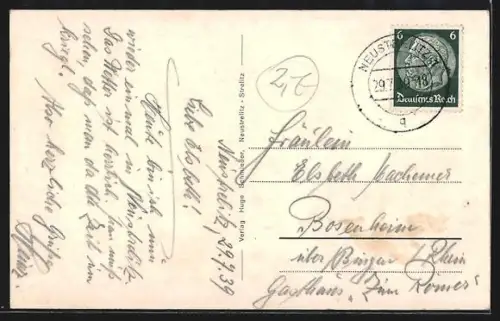 Neustrelitz, 29.7.39
Liebe Elsbeth!
Heute bin ich nun
wieder einmal in Neustrelitz.
Das Wetter ist herrlich. Man muß
sehen, daß man da die Zeit
Herzliche Grüße
Heinz.
Verlag Hugo Neustrelitz - Strelitz
2,5
NEUST
29.7.
18
q
6 6
Deutsches Reich
Fräulein
Elsbeth Machemer
Bosenheim
über Bingen / Rhein
Gasthaus „Zum Römer"